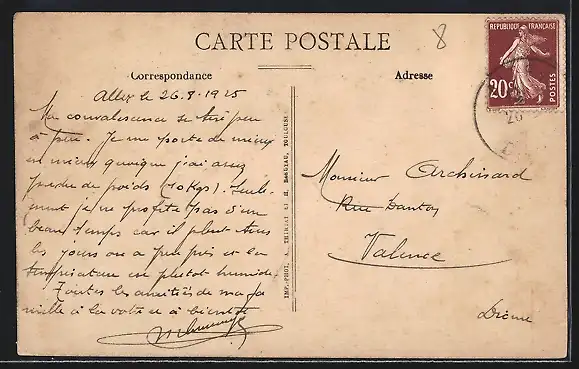 CARTE POSTALE
8
RÉPUBLIQUE FRANÇAISE
20c
POSTES
Correspondance
Adresse
26.8.1925
Ma convalescence se fait peu
à peu. Je me porte de mieux
en mieux quoique j'ai assez
perdu de poids (10 Kgs). Seule-
ment je ne profite pas d'un
beau temps car il pleut tous
les jours ou à peu près et la
température est plutôt humide.
Toutes les amitiés de ma fa
mille à la vôtre et à bientôt
IMP.-PHOT. A. THIRIAT et TOULOUSE
Monsieur Archinard
Rue Danton
Valence
Drôme